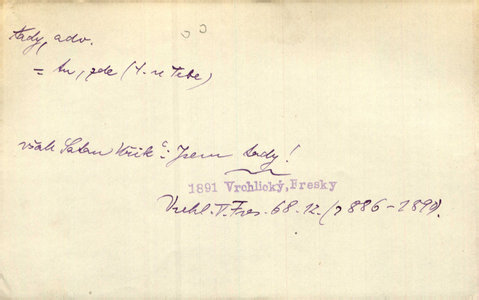 tady, adv.
= tu, zde (
však Satan křik': Jsem tady!
1891 Vrchlický, Fresky
Vrchl. V. Fres. 68. 12. (1886-1890).